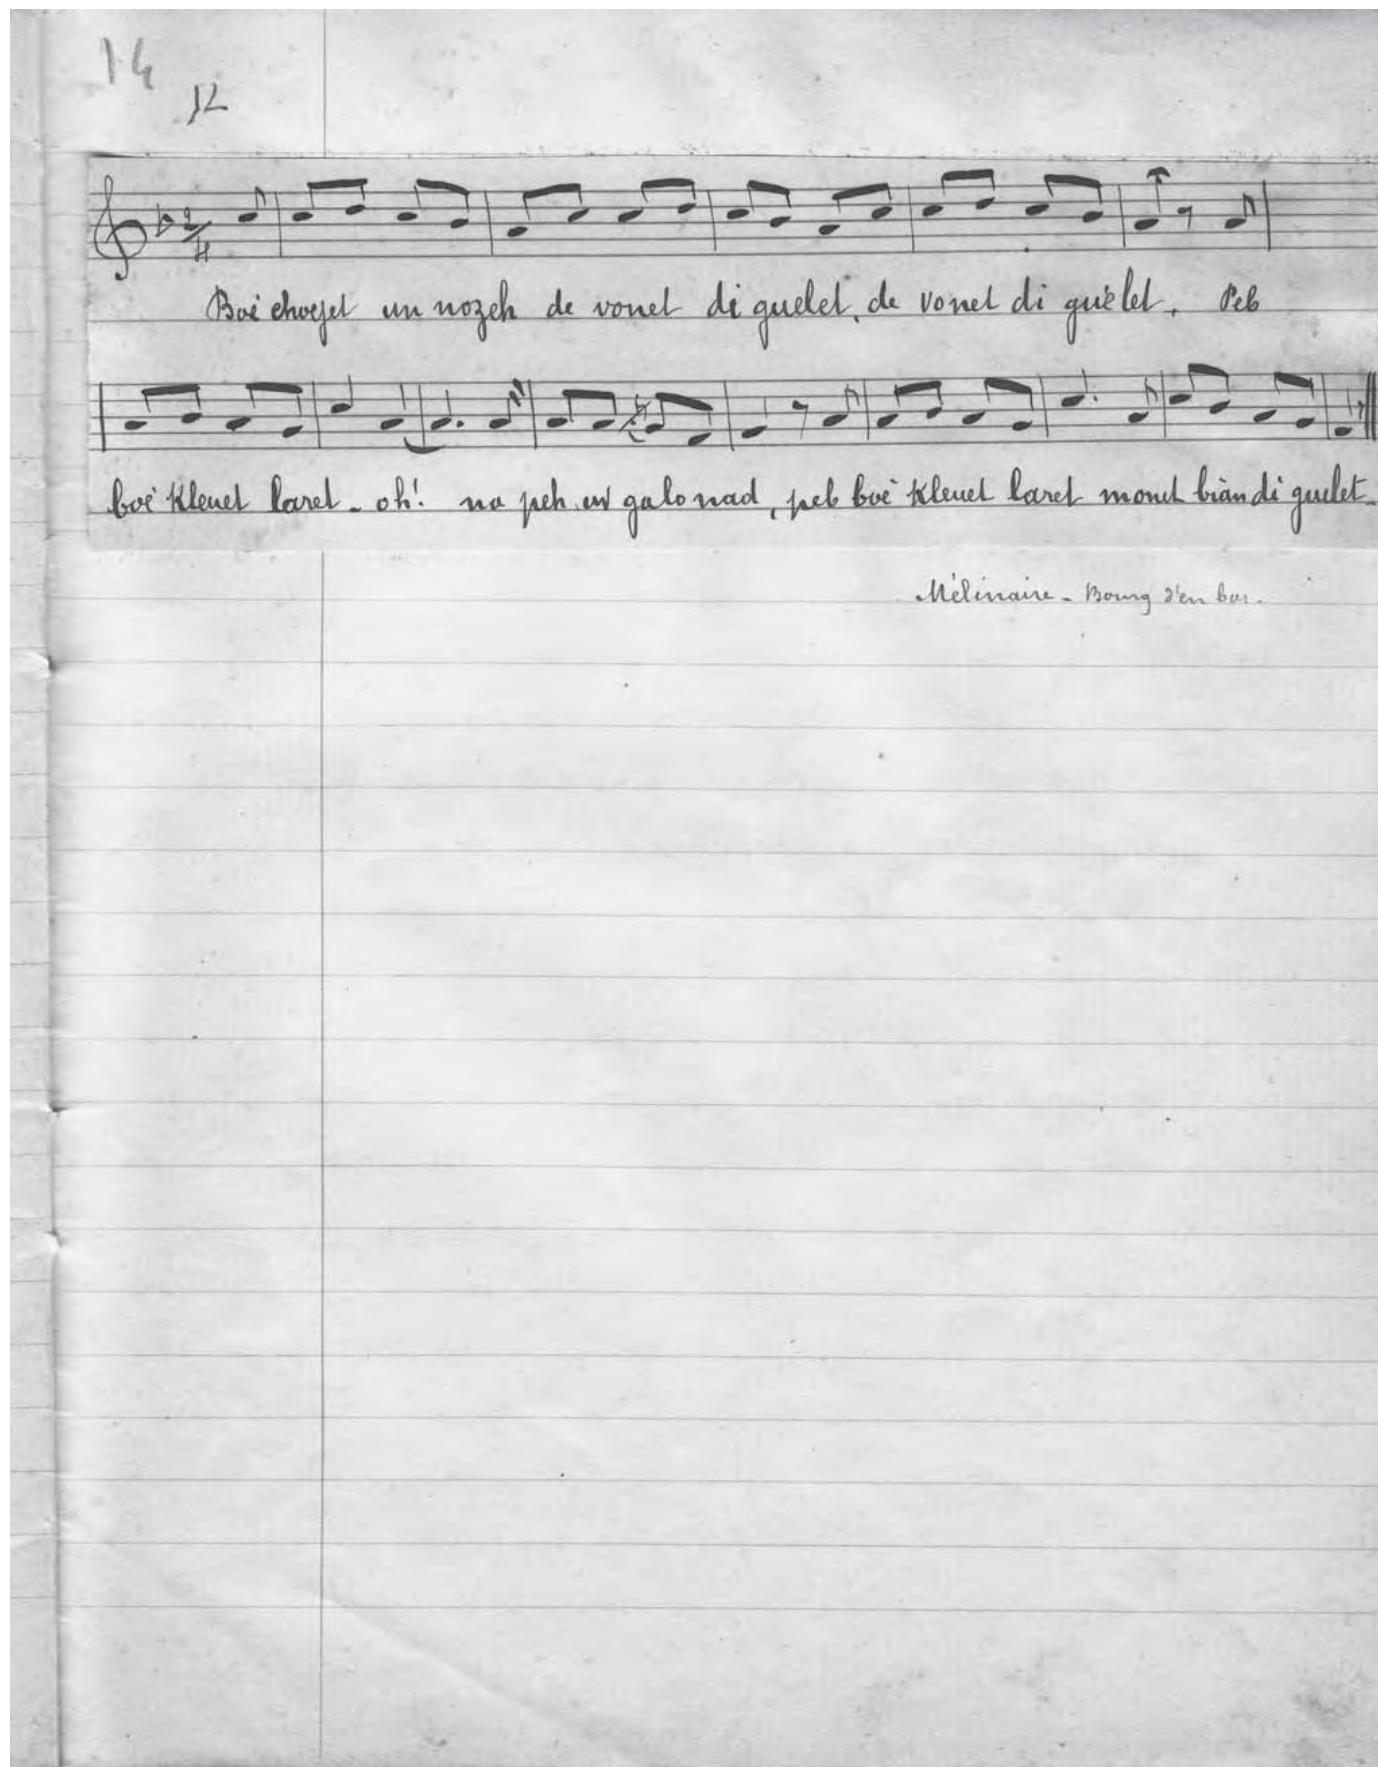 14
12
2
4
Boé choejet un nozeh de vonet di guelet, de vonet di guélet, Peb
boé kleuet laret - oh! na peh ur galonad, peb boé kleuet laret monet bian di guelet -
Mélinaire - Bourg d'en bas.